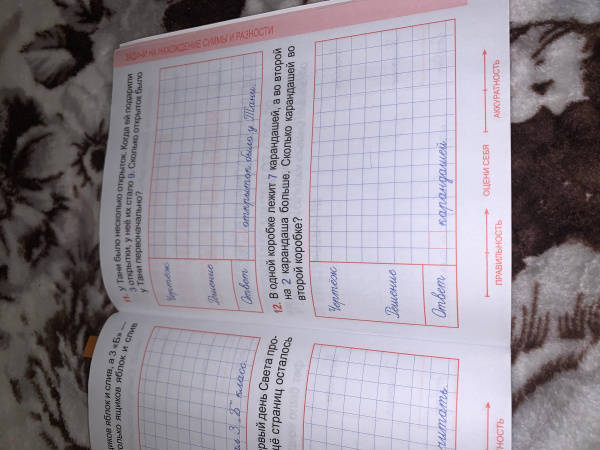 ЗАДАЧИ НА НАХОЖДЕНИЕ СУММЫ И РАЗНОСТИ
11. У Тани было несколько открыток. Когда ей подарили
3 открытки, у неё их стало 9. Сколько открыток было
у Тани первоначально?
Чертёж
Решение
Ответ открыток было у Тани.
12. В одной коробке лежит 7 карандашей, а во второй
на 2 карандаша больше. Сколько карандашей во
второй коробке?
Чертёж
Решение
Ответ карандашей.
ПРАВИЛЬНОСТЬ ОЦЕНИ СЕБЯ АККУРАТНОСТЬ
яблок и слив, а 3 «Б» —
ящиков яблок и слив
3 „Б" класс.
день Света про-
страниц осталось